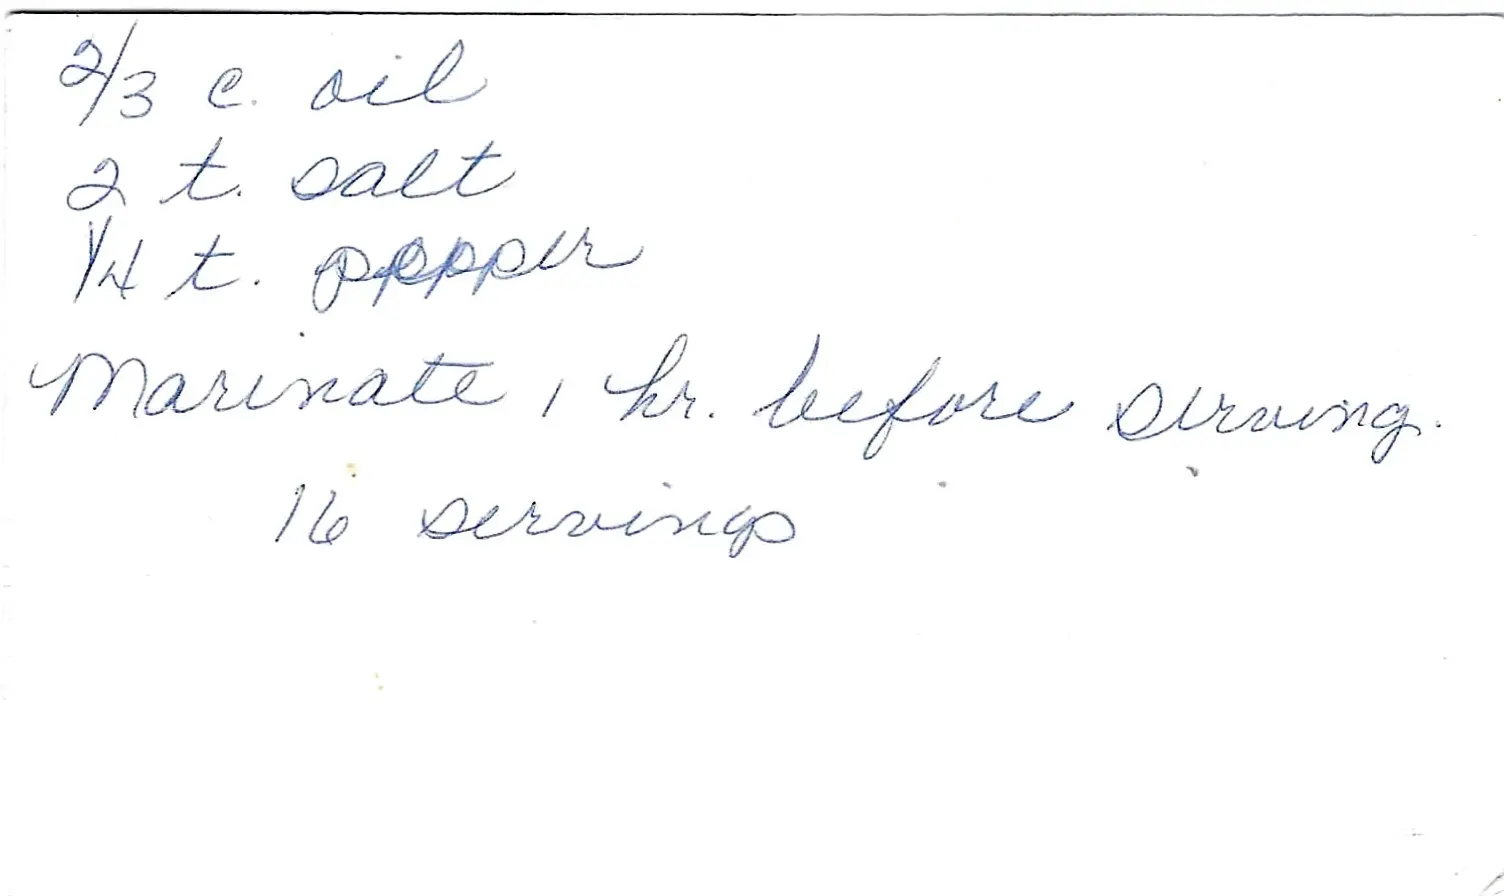 2/3 c. oil
2 t. salt
1/4 t. pepper
Marinate 1 hr. before serving.
16 servings